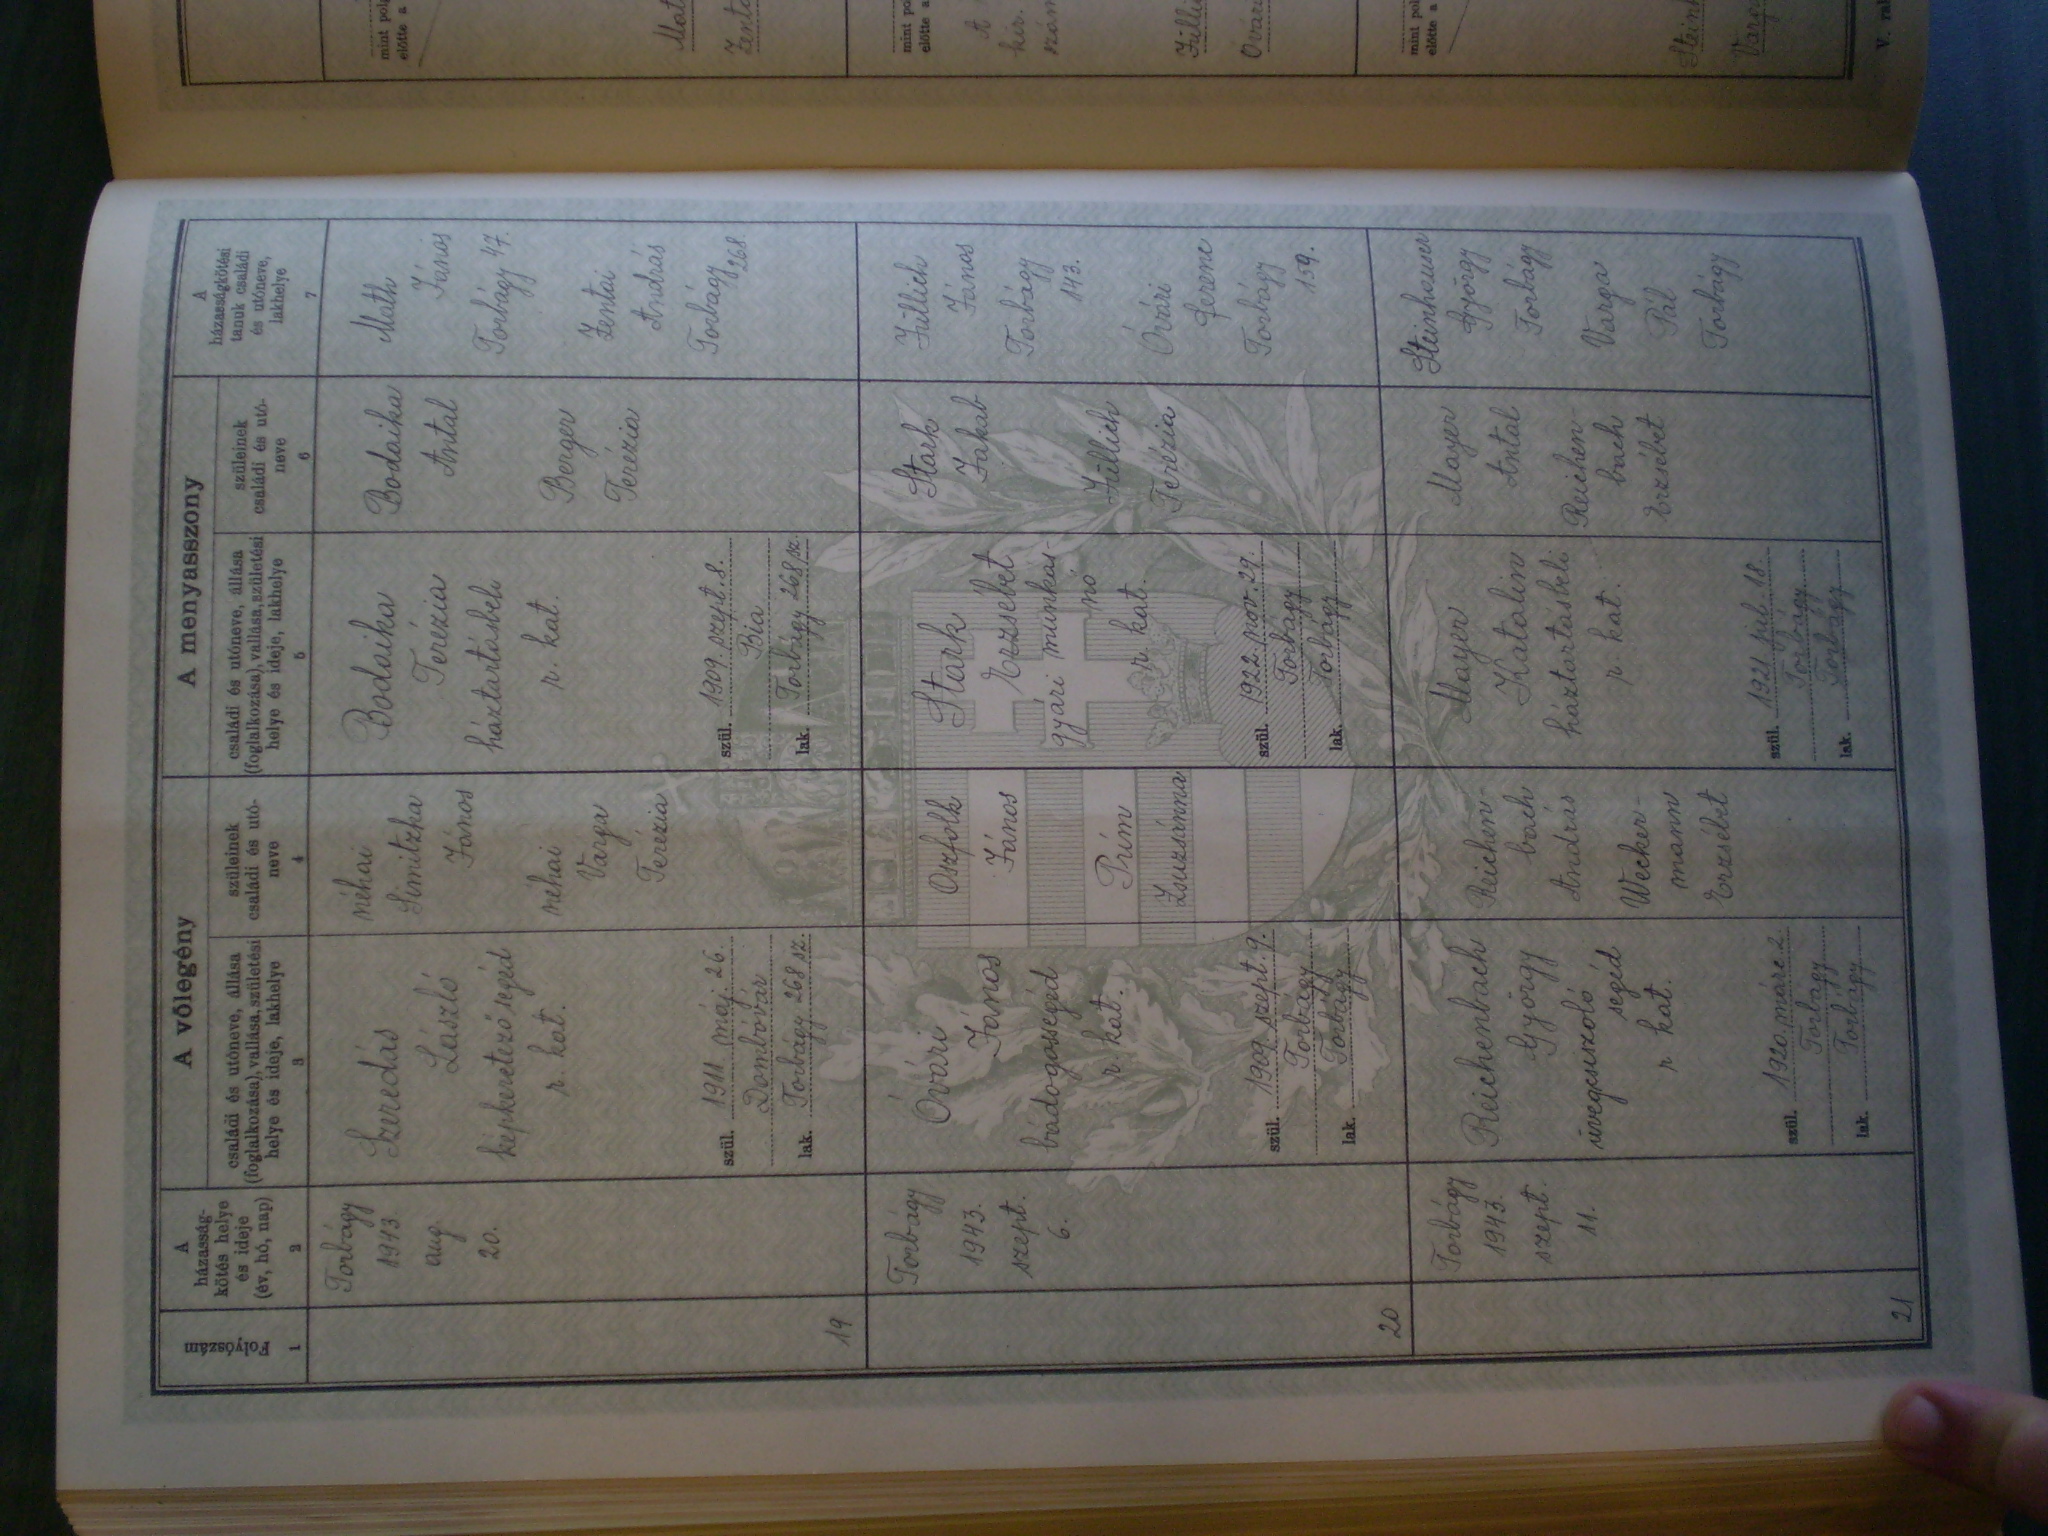 A vőlegény
A menyasszony
Folyószám
A
házasság-
kötés helye
és ideje
(év, hó, nap)
családi és utóneve, állása
(foglalkozása), vallása, születési
helye és ideje, lakhelye
szüleinek
családi és utó-
neve
családi és utóneve, állása
(foglalkozása), vallása, születési
helye és ideje, lakhelye
szüleinek
családi és utó-
neve
A
házasságkötési
tanuk családi
és utóneve,
lakhelye
1
2
3
4
5
6
7
19
Torbágy
1943.
aug.
20.
Szeredás
László
képkeretező segéd
r. kat.
szül. 1911 máj. 26.
Dombóvár
lak. Torbágy 268 sz.
néhai
Simitzka
János
néhai
Varga
Terézia
Bodaika
Terézia
háztartásbeli
r. kat.
szül. 1909. szept. 8.
Bia
lak. Torbágy 268 sz.
Bodaika
Antal
Berger
Terézia
Math
János
Torbágy 47.
Zentai
András
Torbágy 268.
20
Torbágy
1943.
szept.
6.
Óvári
János
bádogossegéd
r. kat.
szül. 1909. szept. 9.
Torbágy
lak. Torbágy
Oszfolk
János
Prim
Zsuzsánna
Stark
Erzsébet
gyári munkás-
nő
r. kat.
szül. 1922. nov. 29.
Torbágy
lak. Torbágy
Stark
Jakab
Jüllich
Terézia
Jüllich
János
Torbágy
143.
Óvári
Ferenc
Torbágy
159.
21
Torbágy
1943.
szept.
11.
Reichenbach
György
üvegcsiszoló
segéd
r. kat.
szül. 1920. márc. 2.
Torbágy
lak. Torbágy
Reichen-
bach
András
Wecker-
mann
Erzsébet
Mayer
Katalin
háztartásbeli
r. kat.
szül. 1921. júl. 18.
Torbágy
lak. Torbágy
Mayer
Antal
Reichen-
bach
Erzsébet
Steinheuser
György
Torbágy
Varga
Pál
Torbágy
mint pol
előtte a
Mat
Zenta
mint pol
előtte a
A
ker.
szám
Jülli
Óvári
mint pol
előtte a
Stein
Varga
V. ra